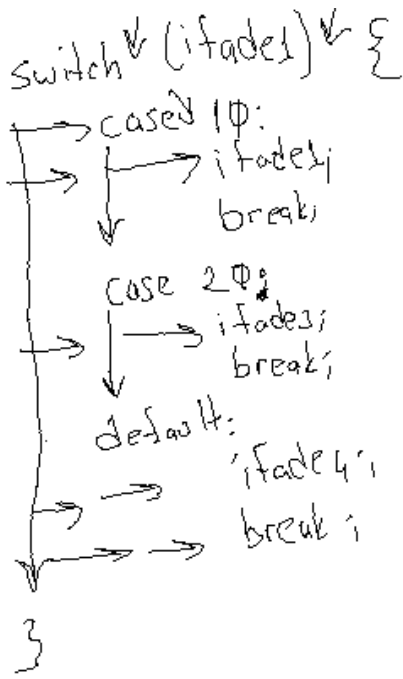 switch (ifade1) {
case 10:
ifade2;
break;
case 20:
ifade3;
break;
default:
ifade4;
break;
}